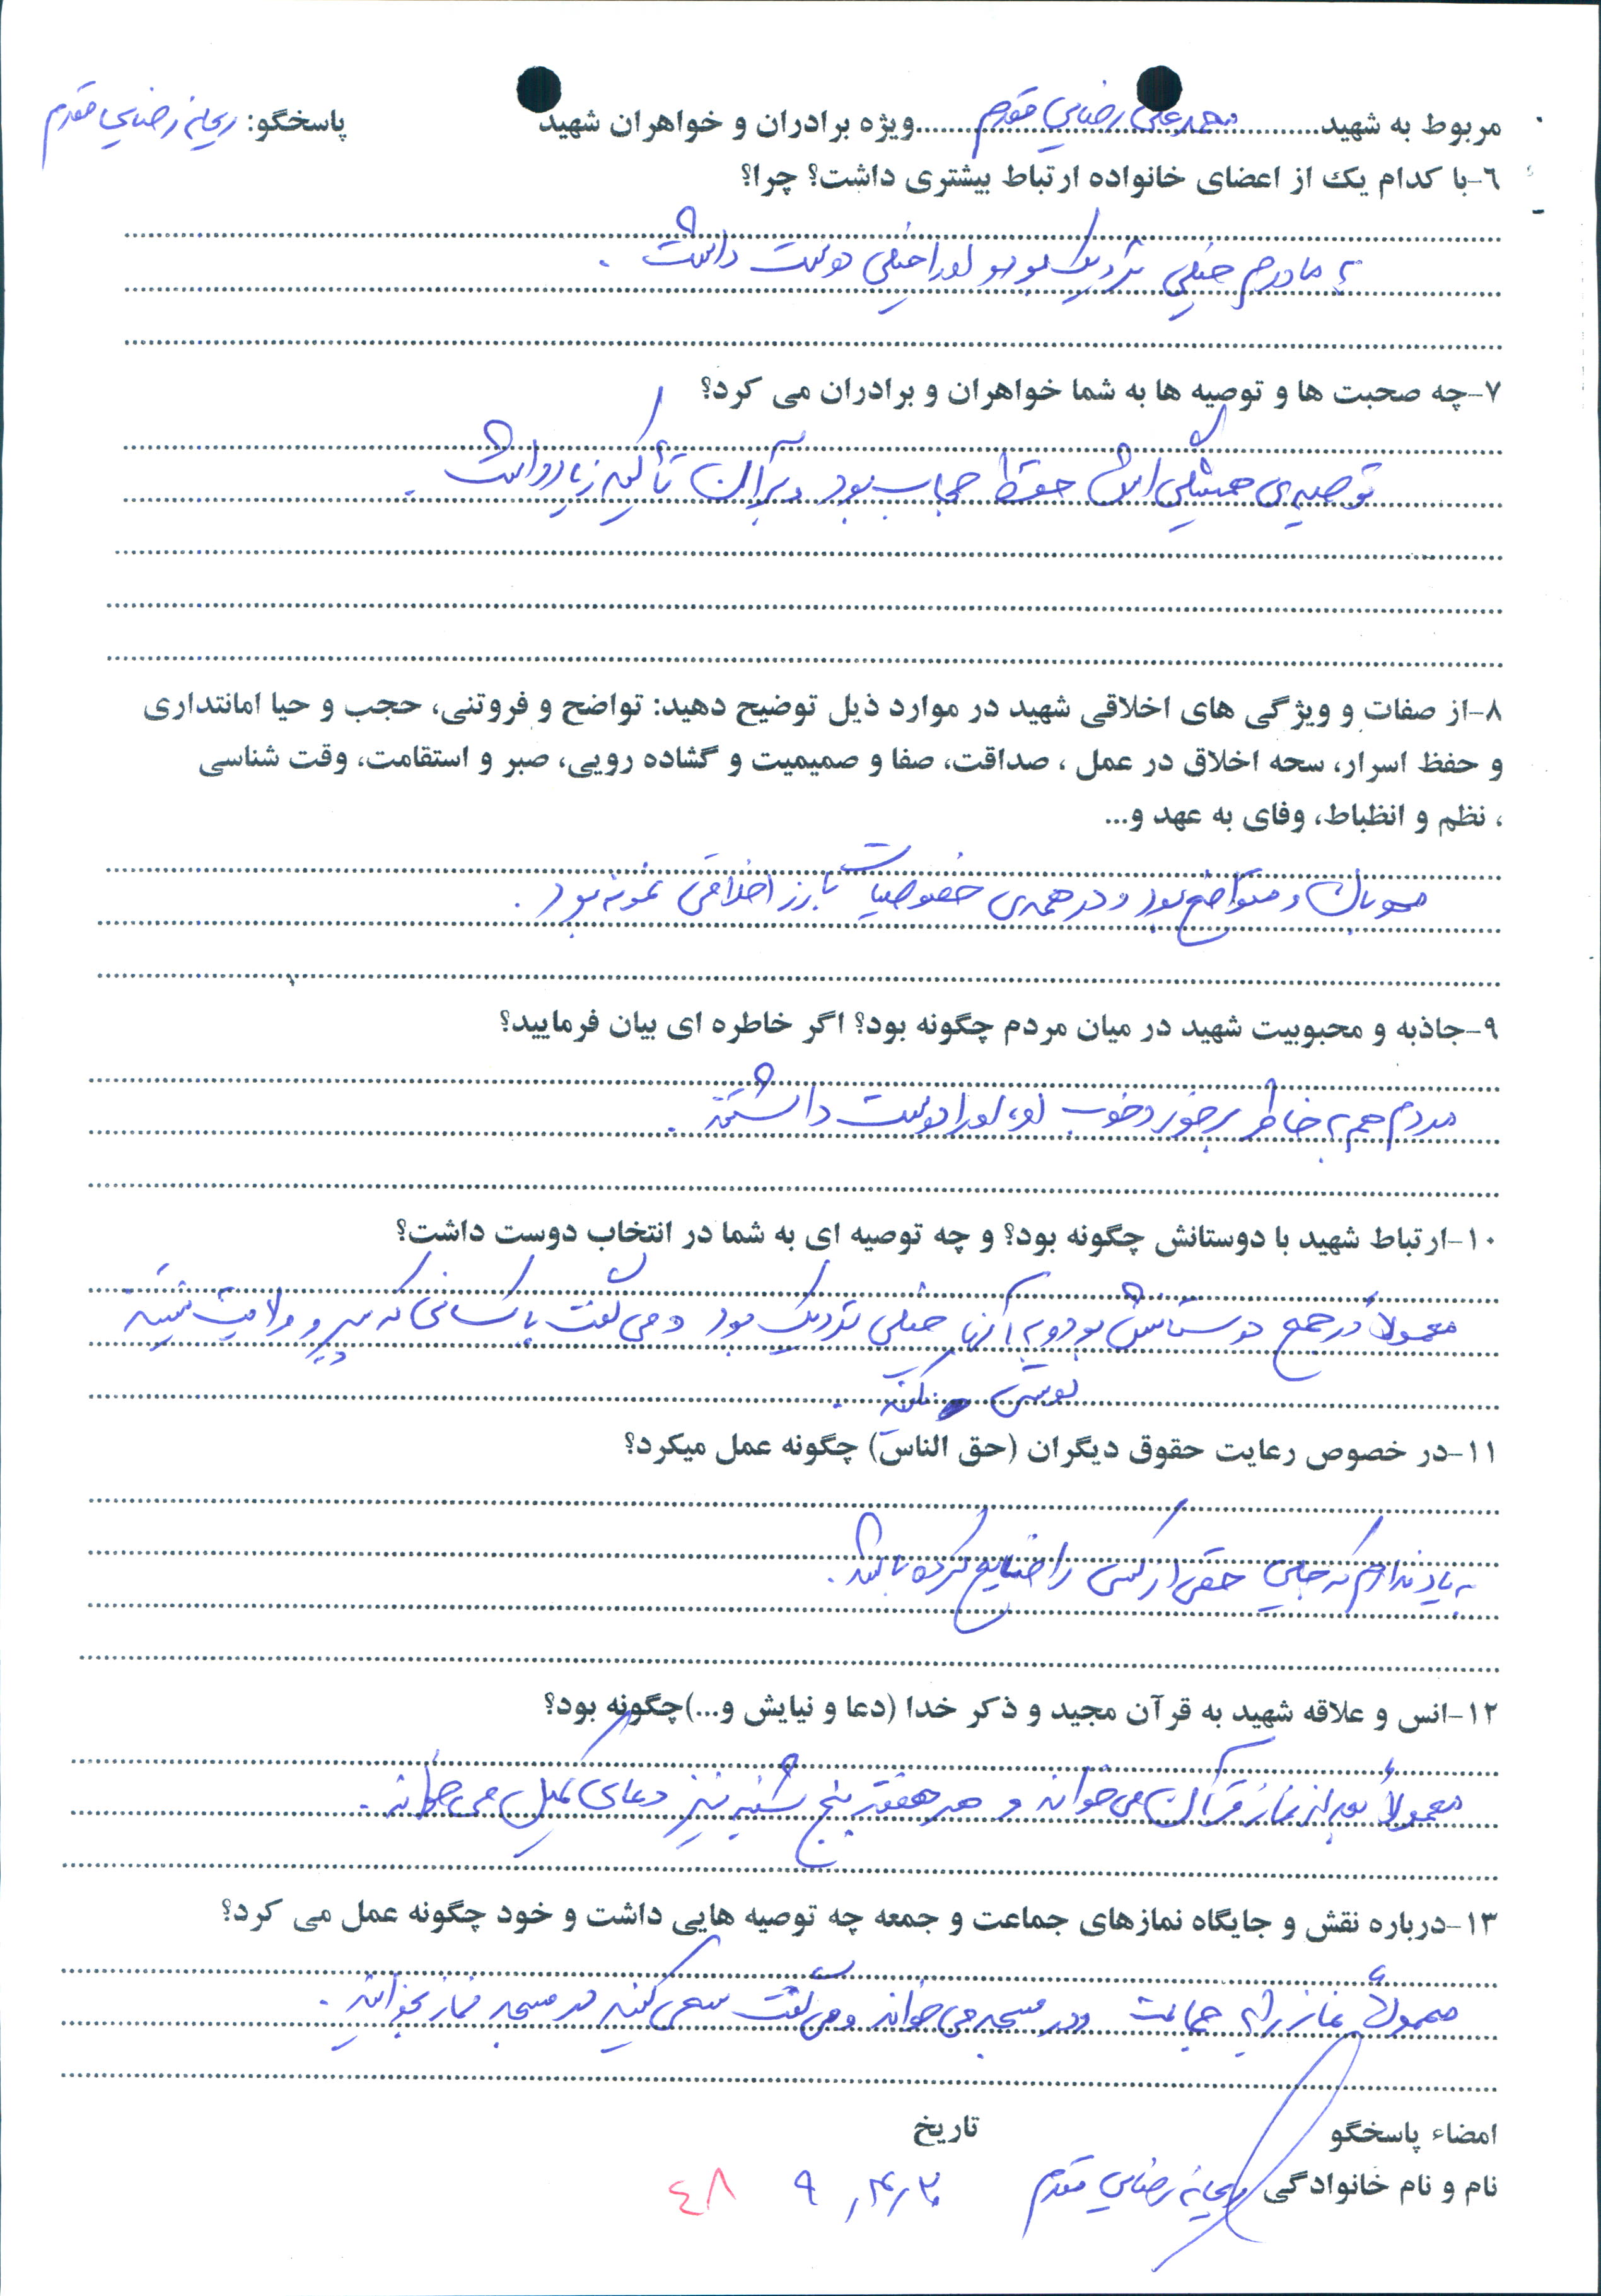 مربوط به شهید محمدعلی رضایی مقدم ویژه برادران و خواهران شهید پاسخگو: ریحانه رضایی مقدم
۶-با کدام یک از اعضای خانواده ارتباط بیشتری داشت؟ چرا؟
به مادرم خیلی نزدیک بود و او را خیلی دوست داشت .
۷-چه صحبت ها و توصیه ها به شما خواهران و برادران می کرد؟
توصیه‌ی همیشگی اش حفظ حجاب بود و بر آن تأکید زیاد داشت .
۸-از صفات و ویژگی های اخلاقی شهید در موارد ذیل توضیح دهید: تواضح و فروتنی، حجب و حیا امانتداری
و حفظ اسرار، سحه اخلاق در عمل ، صداقت، صفا و صمیمیت و گشاده رویی، صبر و استقامت، وقت شناسی
، نظم و انظباط، وفای به عهد و...
مهربان و متواضع بود و در همه‌ی خصوصیات بارز اخلاقی نمونه بود .
۹-جاذبه و محبوبیت شهید در میان مردم چگونه بود؟ اگر خاطره ای بیان فرمایید؟
مردم هم به خاطر برخورد خوب او، او را دوست داشتند .
۱۰-ارتباط شهید با دوستانش چگونه بود؟ و چه توصیه ای به شما در انتخاب دوست داشت؟
معمولاً در جمع دوستانش بود و به آنها خیلی نزدیک بود و می گفت با کسانی که پیرو ولایت نیستند
دوستی نکنید .
۱۱-در خصوص رعایت حقوق دیگران (حق الناس) چگونه عمل میکرد؟
به یاد ندارم که جایی حقی از کسی را ضایع کرده باشد .
۱۲-انس و علاقه شهید به قرآن مجید و ذکر خدا (دعا و نیایش و...)چگونه بود؟
معمولاً بعد از نماز قرآن می خواند و هر هفته پنج شنبه نیز دعای کمیل می خواند .
۱۳-درباره نقش و جایگاه نمازهای جماعت و جمعه چه توصیه هایی داشت و خود چگونه عمل می کرد؟
معمولاً نماز را به جماعت و در مسجد می خواند و می گفت سعی کنید در مسجد نماز بخوانید .
امضاء پاسخگو تاریخ
نام و نام خانوادگی ریحانه رضایی مقدم
٤٨